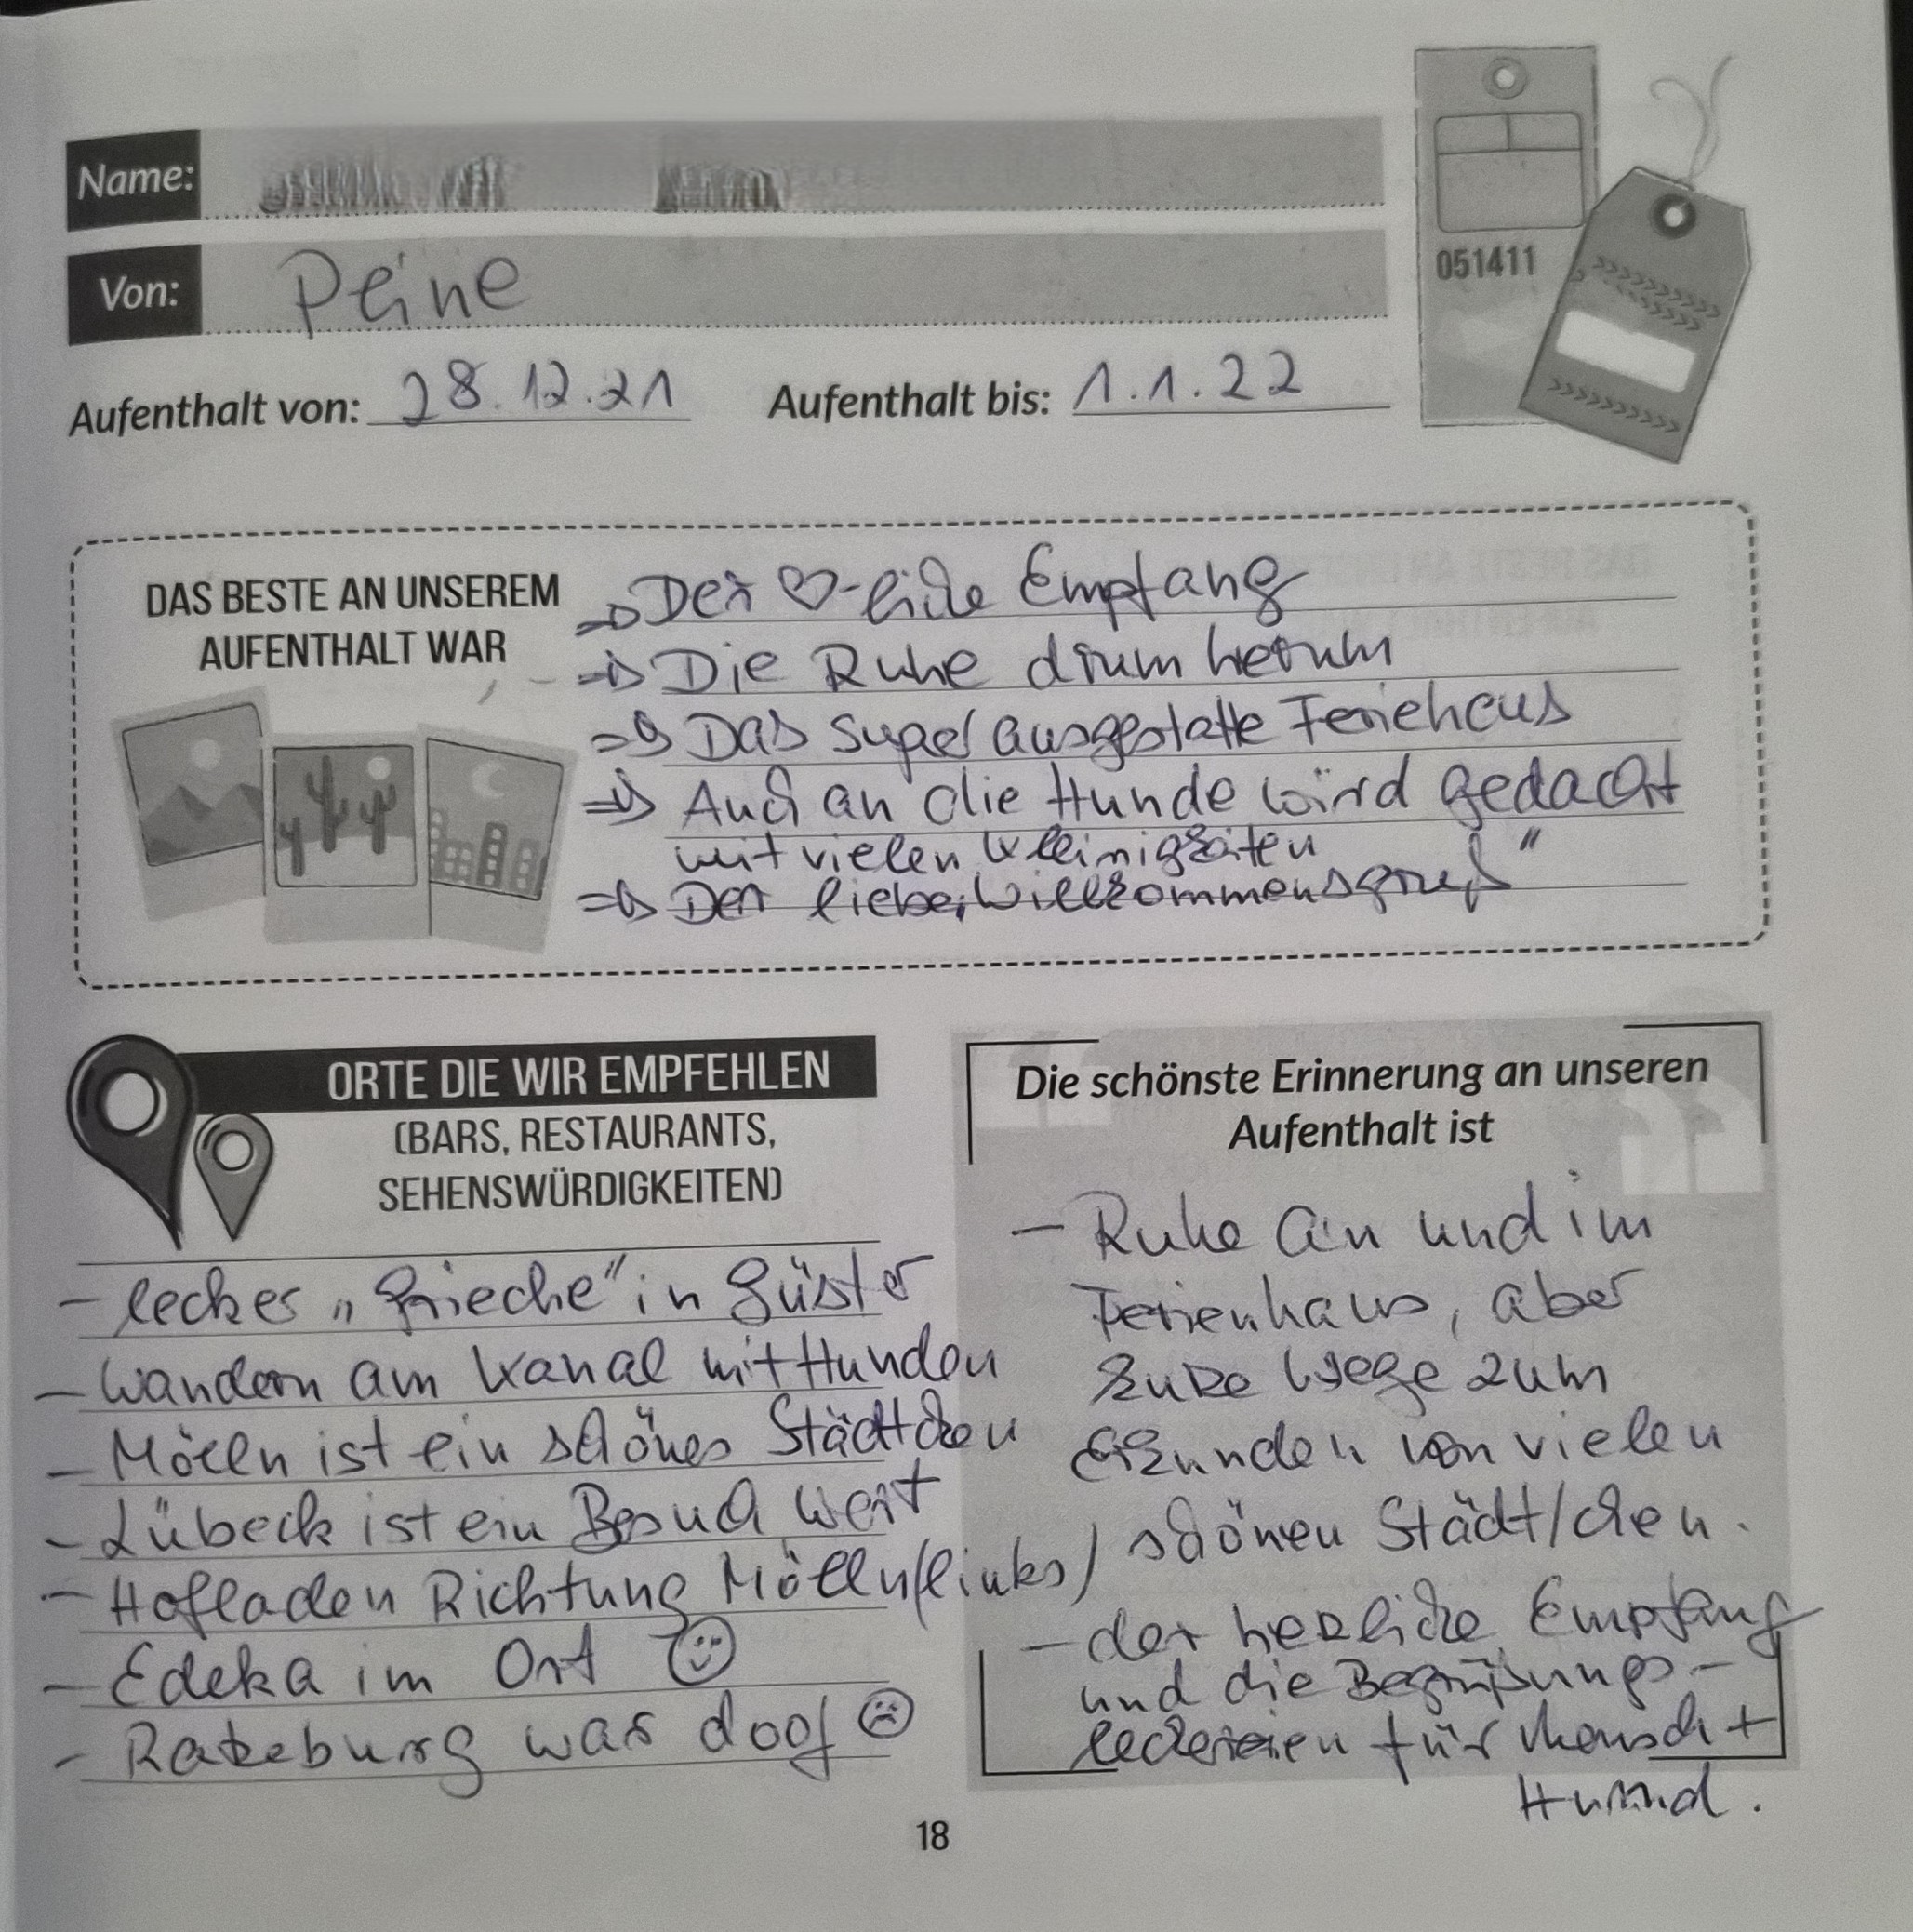 Name:
Von: Peine
051411
Aufenthalt von: 28.12.21 Aufenthalt bis: 1.1.22
DAS BESTE AN UNSEREM
AUFENTHALT WAR
=> Der ♡-liche Empfang
=> Die Ruhe drum herum
=> Das super ausgestatte Feriehaus
=> Auch an die Hunde wird gedacht
mit vielen Kleinigkeiten
=> Der liebe „Willkommensgruß"
ORTE DIE WIR EMPFEHLEN
(BARS, RESTAURANTS,
SEHENSWÜRDIGKEITEN)
- lecker „Grieche" in Güster
- Wandern am Kanal mit Hunden
- Mölln ist ein schönes Städtchen
- Lübeck ist ein Besuch wert
- Hofladen Richtung Mölln (links)
- Edeka im Ort ☺
- Ratzeburg war doof ☹
Die schönste Erinnerung an unseren
Aufenthalt ist
- Ruhe an und im
Ferienhaus, aber
kurze Wege zum
Erkunden von vielen
schönen Städt/chen.
- der herzliche Empfang
und die Begrüßungs-
leckereien für Mensch +
Hund.
18